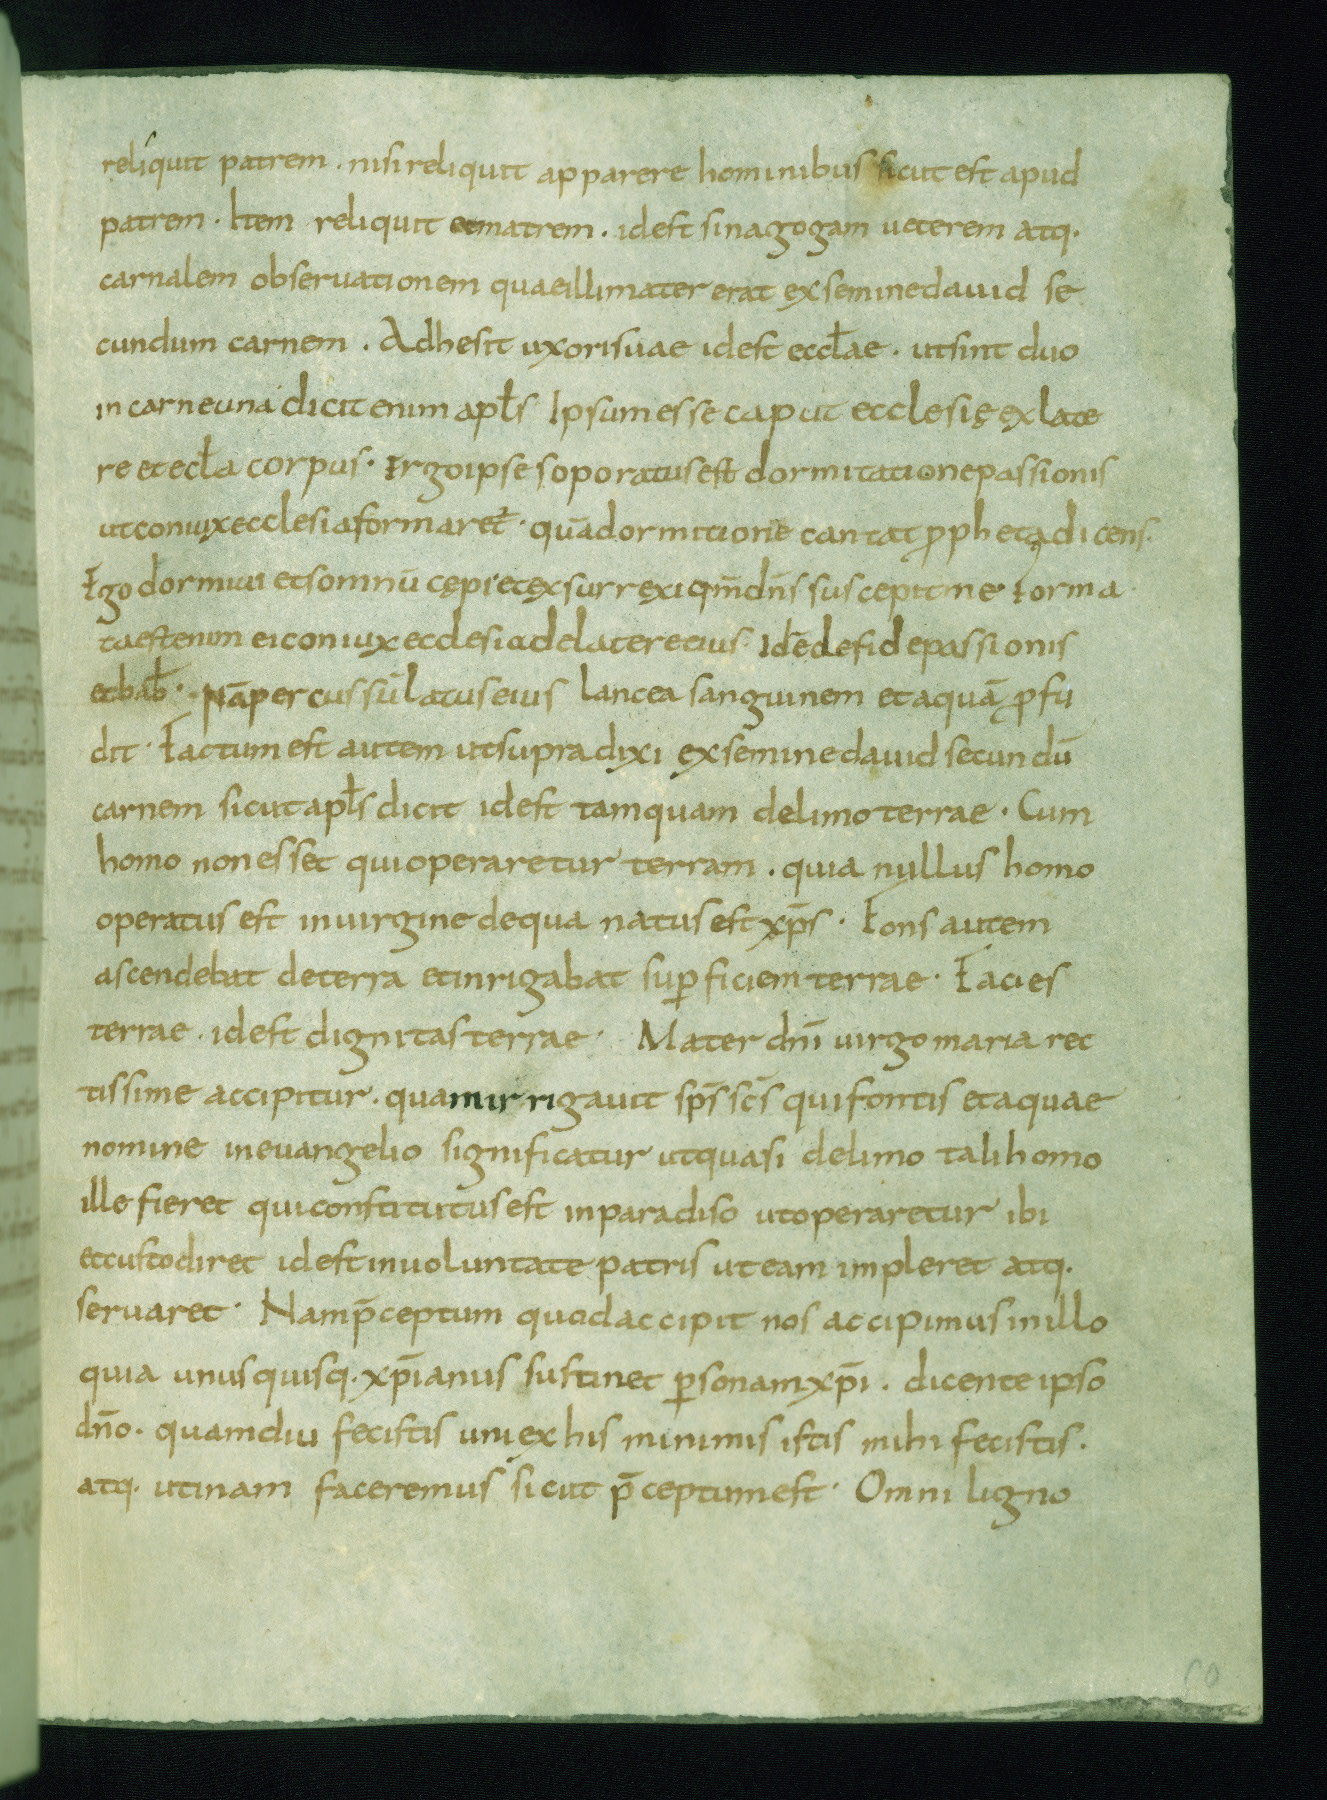 reliquit patrem . nisi reliquit apparere hominibus sicut est apud
patrem . Item reliquit et matrem . id est sinagogam ueterem atq.
carnalem obseruationem quae illi mater erat ex semine dauid se
cundum carnem . Adhesit uxori suae id est eccłae . ut sint duo
in carne una dicit enim apłs Ipsum esse caput ecclesię ex late
re et ecła corpus . Ergo ipse soporatus est dormitatione passionis
ut coniux ecclesia formaret̃ . quā dormitione cantat ꝓpheta dicens .
Ego dormiui et somnū cępi et exsurrexi qm̄ dn̄s suscepit me . Forma
ta est enim ei coniux ecclesia de latere eius . Id ē de fide passionis
et bab̄ . Nā percussū latus eius lancea sanguinem et aquā ꝓfu
dit . Factum est autem ut supra dixi ex semine dauid secundū
carnem sicut apłs dicit id est tamquam de limo terrae . Cum
homo non esset qui operaretur terram . quia nyllus homo
operatus est in uirgine de qua natus est xp̄s . Fons autem
ascendebat de terra et inrigabat suꝑficiem terrae . Facies
terrae . id est dignitas terrae . Mater dn̄i uirgo maria rec
tissime accipitur . quam irrigauit sp̄s sc̄s qui fontis et aquae
nomine in euangelio significatur ut quasi de limo tali homo
ille fieret qui constitutus est in paradiso ut operaretur ibi
et custodiret id est in uoluntate patris ut eam impleret atq.
seruaret . Nam p̄ceptum quod accipit nos accipimus in illo
quia unusquisq. xp̄ianus sustinet ꝑsonam xp̄i . dicente ipso
dn̄o . quamdiu fecistis uni ex his minimis istis mihi fecistis .
atq. utinam faceremus sicut p̄ceptum est . Omni ligno